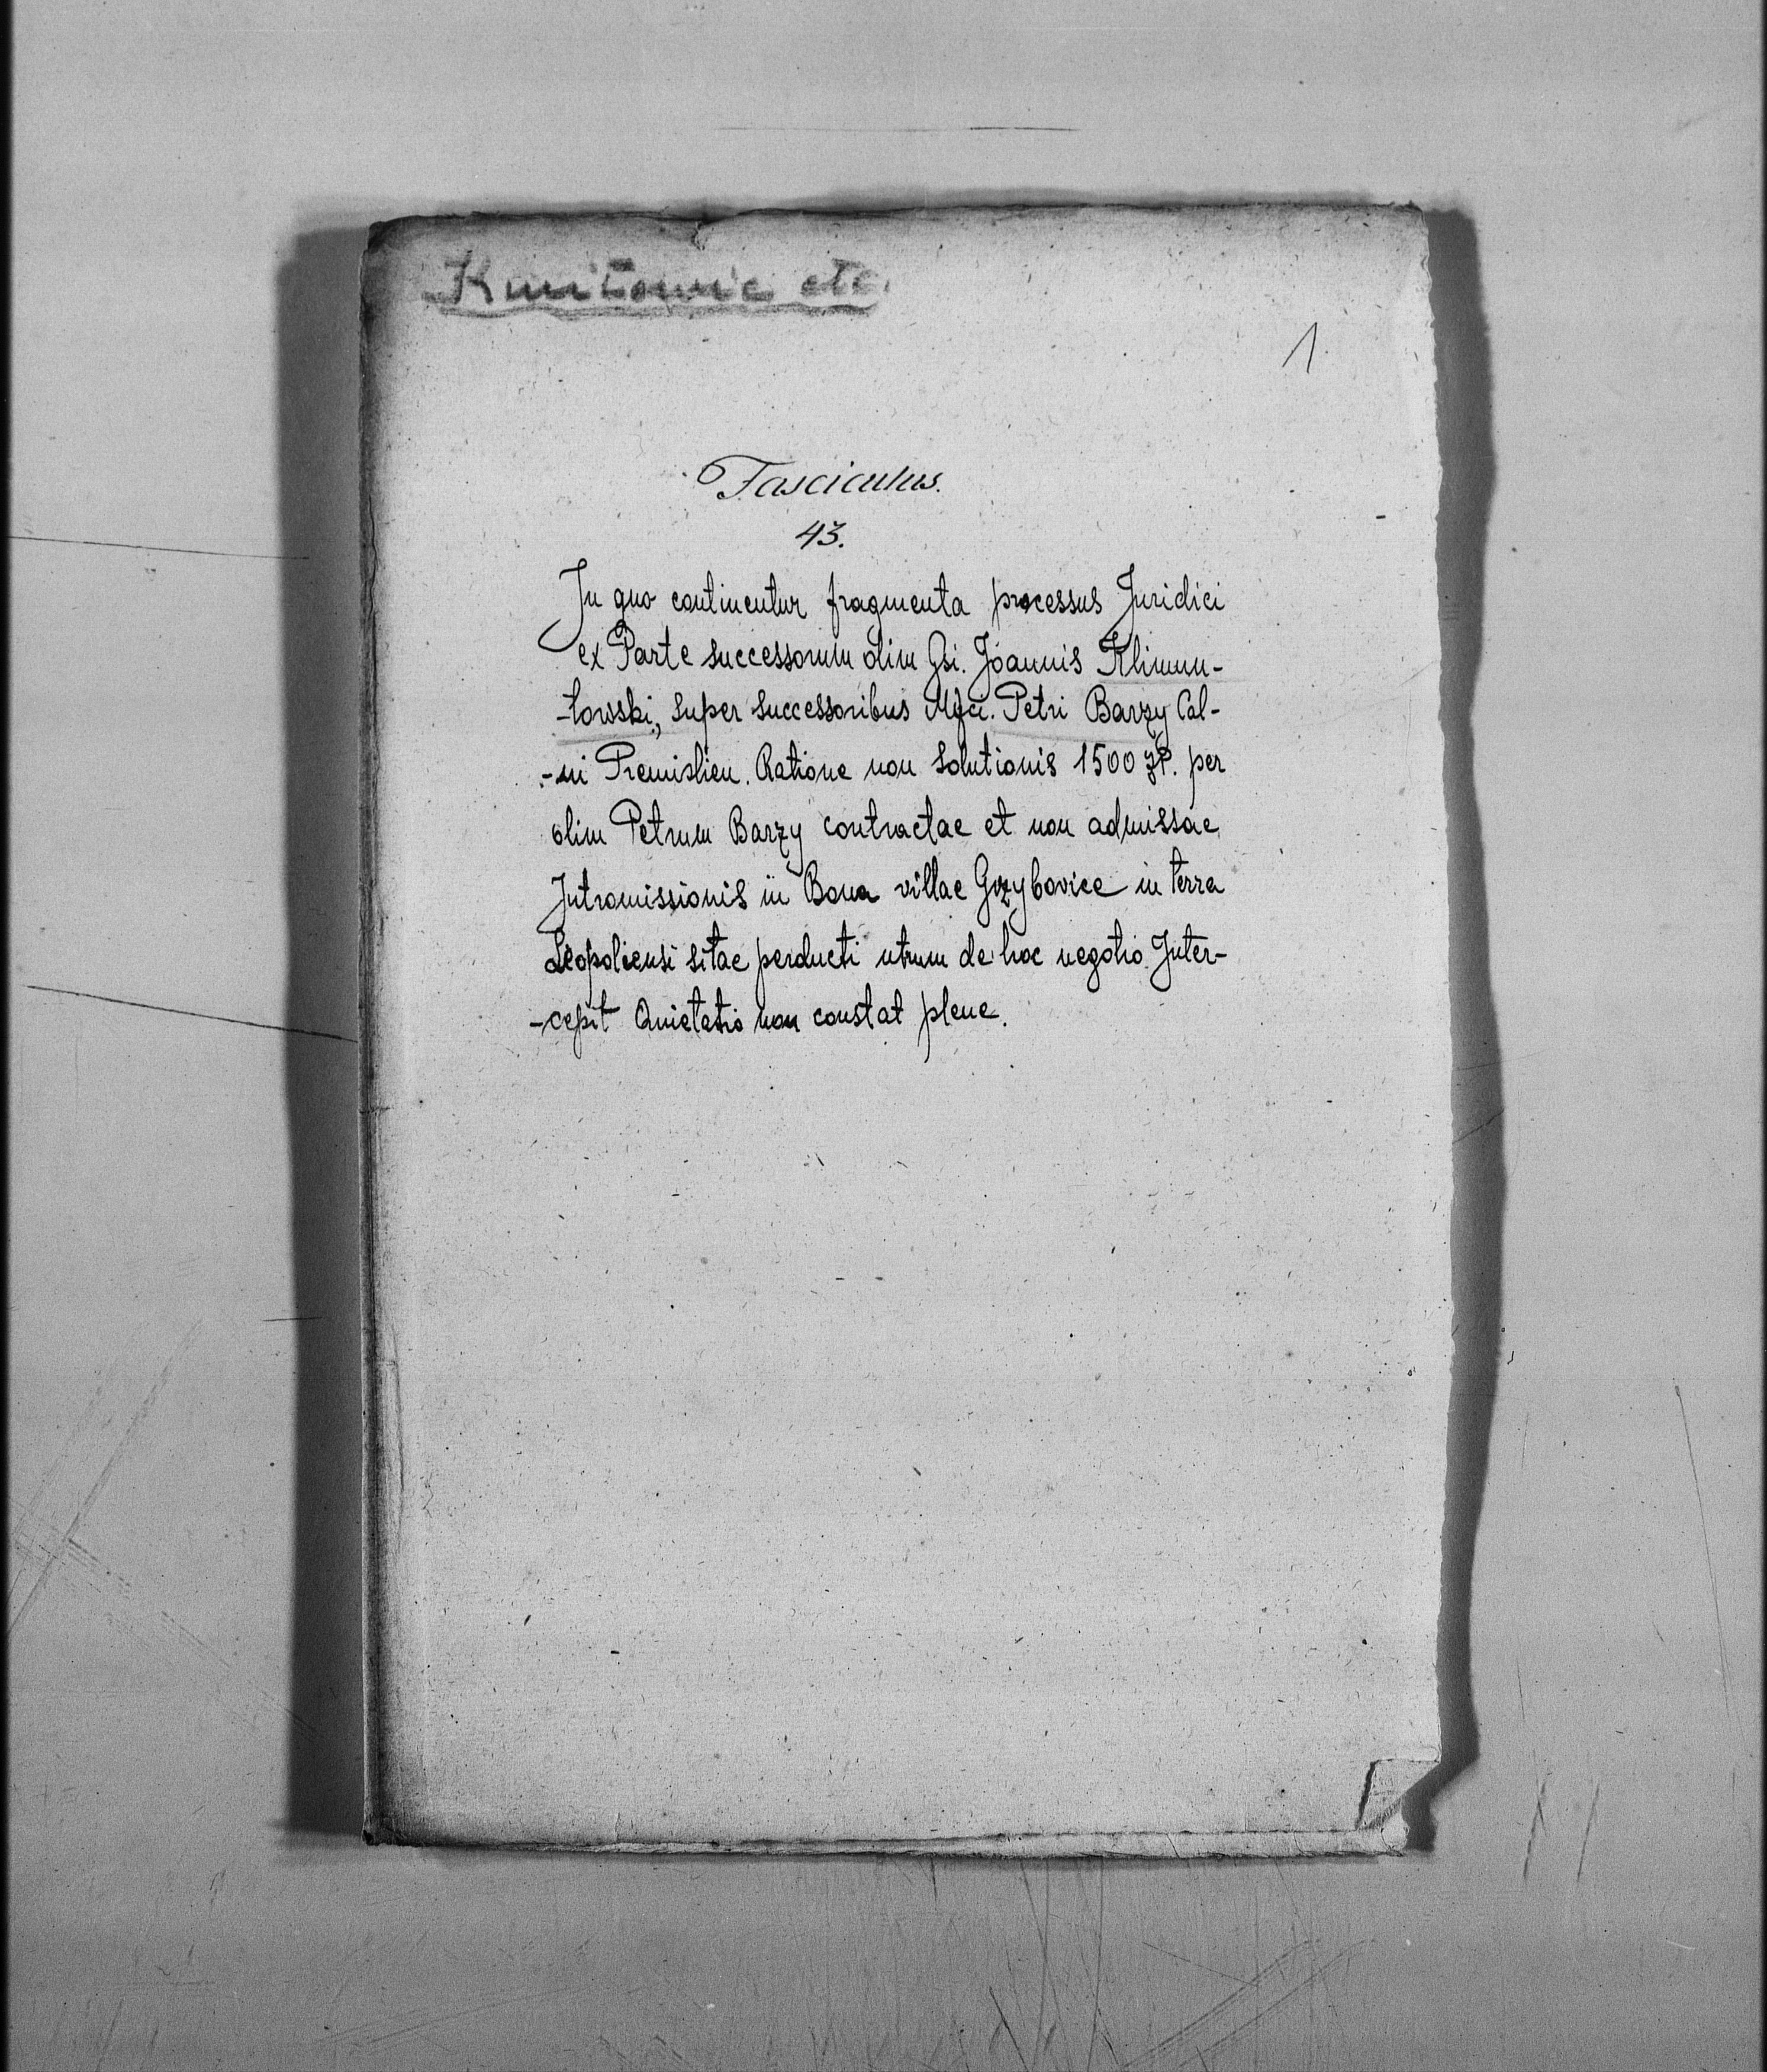 etc.
1
Fasciculus.
43.
In quo continentur fragmenta processus Juridici
ex Parte successorum olim Gsi. Joannis Klimun-
-towski, super successoribus Mfci. Petri Barzy Cal-
-ni Premislien. Ratione non Solutionis 1500 zP. per
olim Petrum Barzy contractae et non admissae
Intromissionis in Bona villae Grzybovice in terra
Leopoliensi sitae perducti utrum de hoc negotio Inter-
-cepit Quietatio non constat plene.